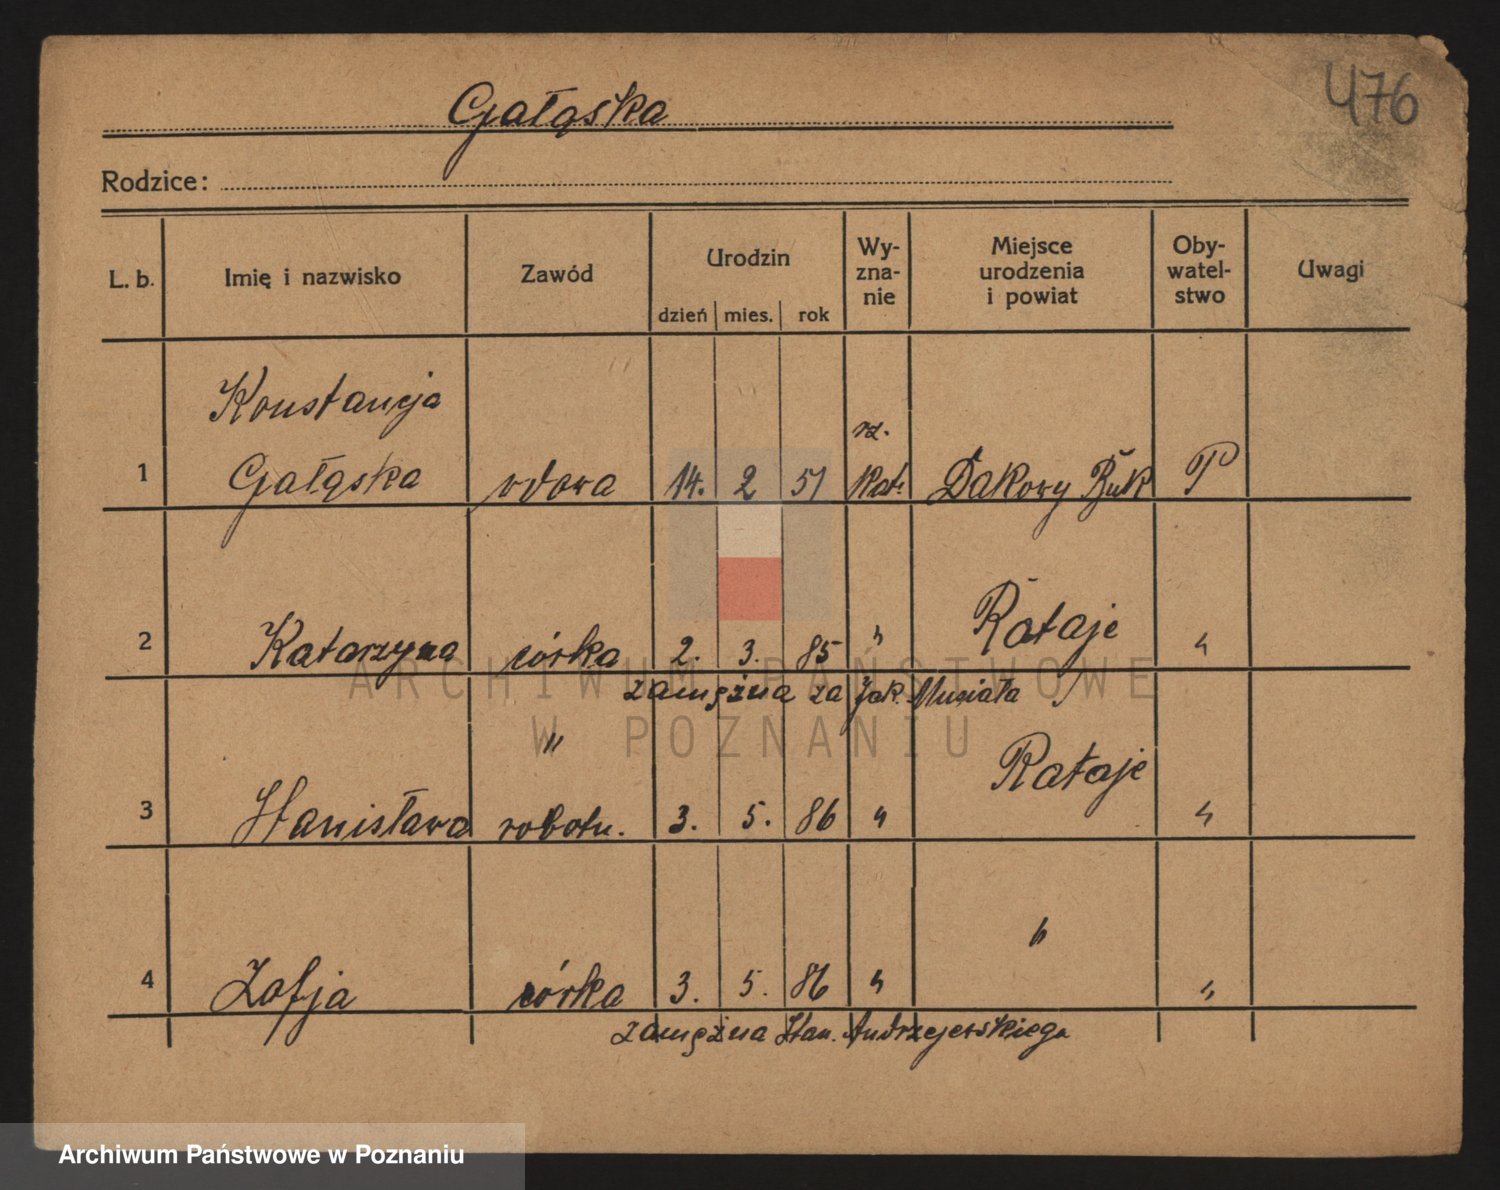 476
Gałąska
Rodzice:
L. b. Imię i nazwisko Zawód Urodzin dzień mies. rok Wy-zna-nie Miejsce urodzenia i powiat Oby-watel-stwo Uwagi
Konstancja
rz.
1 Gałąska wdowa 14. 2 51 kat. Dakowy Buk P
Rataje
2 Katarzyna córka 2. 3. 85 " "
zamężna za Jak. Musiała
" Rataje
3 Stanisława robotn. 3. 5. 86 " "
"
4 Zofja córka 3. 5. 86 " "
zamężna Stan. Andrzejewskiego
ARCHIWUM PAŃSTWOWE
W POZNANIU
Archiwum Państwowe w Poznaniu